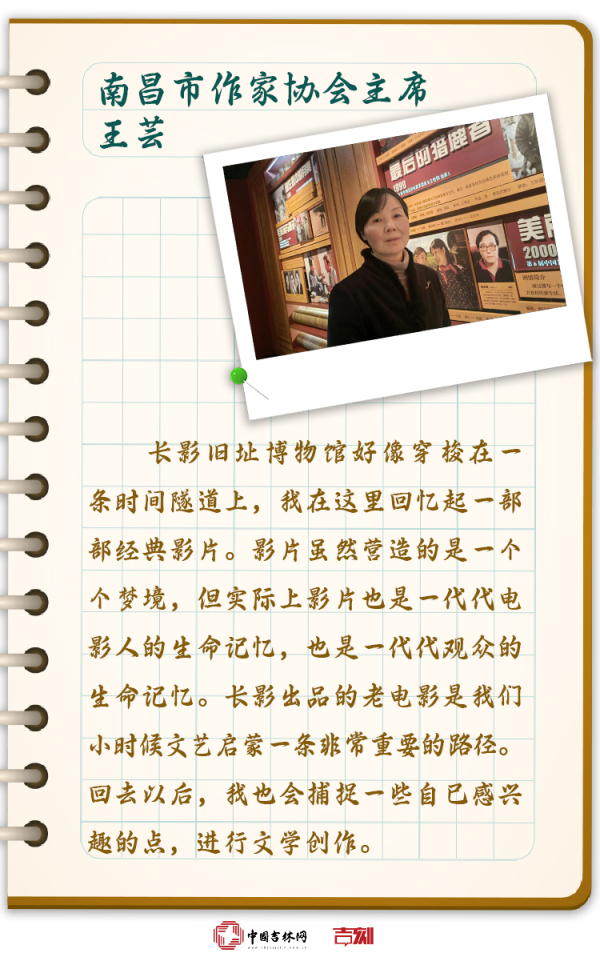 南昌市作家协会主席
王芸
最后的猎鹿者
1999
2000
长影旧址博物馆好像穿梭在一
条时间隧道上，我在这里回忆起一部
部经典影片。影片虽然营造的是一个
个梦境，但实际上影片也是一代代电
影人的生命记忆，也是一代代观众的
生命记忆。长影出品的老电影是我们
小时候文艺启蒙一条非常重要的路径。
回去以后，我也会捕捉一些自已感兴
趣的点，进行文学创作。
中国吉林网
吉刻